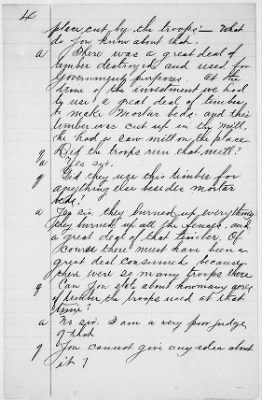 4
plan, cut by the troops — What
do you know about that.
a There was a great deal of
timber destroyed and used for
Government purposes. At the
time of the investment we had
to use a great deal of timber
to make Mortar beds and this
timber was cut up in the mill.
He had a saw mill on the place
q Did the troops run that mill?
a Yes sir.
q Did they use this timber for
anything else besides mortar
beds?
a Yes sir they burned up everything
they burned up all the fences and
a great deal of that timber. Of
course there must have been a
great deal consumed because
there were so many troops there
q Can you state about how many acres
of timber the troops used at that
time?
a No sir. I am a very poor judge
of that
q You cannot give any idea about
it?